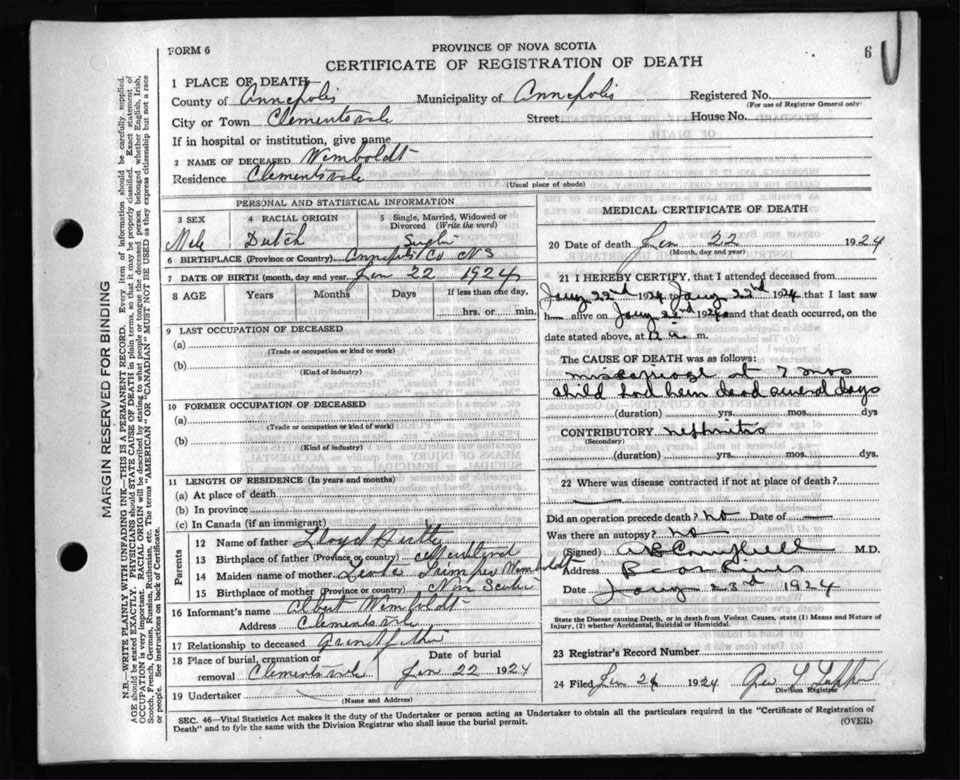 FORM 6
PROVINCE OF NOVA SCOTIA
6
CERTIFICATE OF REGISTRATION OF DEATH
1 PLACE OF DEATH
County of Annapolis Municipality of Annapolis Registered No.
(For use of Registrar General only)
City or Town Clementsvale Street House No.
If in hospital or institution, give name
2 NAME OF DECEASED Wemboldt
Residence Clementsvale
(Usual place of abode)
PERSONAL AND STATISTICAL INFORMATION
3 SEX 4 RACIAL ORIGIN 5 Single, Married, Widowed or Divorced (Write the word)
Male Dutch Single
6 BIRTHPLACE (Province or Country) Annapolis Co N S
7 DATE OF BIRTH (month, day and year) Jan 22 1924
8 AGE Years Months Days If less than one day,
hrs. or min.
9 LAST OCCUPATION OF DECEASED
(a)
(Trade or occupation or kind or work)
(b)
(Kind of industry)
10 FORMER OCCUPATION OF DECEASED
(a)
(Trade or occupation or kind or work)
(b)
(Kind of industry)
11 LENGTH OF RESIDENCE (In years and months)
(a) At place of death
(b) In province
(c) In Canada (if an immigrant)
Parents
12 Name of father Lloyd
13 Birthplace of father (Province or country)
14 Maiden name of mother Wemboldt
15 Birthplace of mother (Province or country) Nova Scotia
16 Informant's name Albert Wemboldt
Address Clementsvale
17 Relationship to deceased Grandfather
18 Place of burial, cremation or removal Date of burial
Clementsvale Jan 22 1924
19 Undertaker
(Name and Address)
MEDICAL CERTIFICATE OF DEATH
20 Date of death Jan 22 1924
(Month, day and year)
21 I HEREBY CERTIFY, that I attended deceased from
Jany 22nd 1924 to Jany 22nd 1924 that I last saw
h alive on Jany 22nd 1924 and that death occurred, on
date stated above, at 12 a. m.
The CAUSE OF DEATH was as follows:
miscarriage at 7 mos
child had been dead several days
(duration) yrs. mos. dys
CONTRIBUTORY nephritis
(Secondary)
(duration) yrs. mos. dys.
22 Where was disease contracted if not at place of death?
Did an operation precede death? no Date of —
Was there an autopsy? no
(Signed) AB Campbell M.D.
Address Bear River
Date Jany 23rd 1924
State the Disease causing Death, or in death from Violent Causes, state (1) Means and Nature of Injury, (2) whether Accidental, Suicidal or Homicidal.
23 Registrar's Record Number
24 Filed Jan 24 1924 Geo L
Division Registrar
SEC. 46—Vital Statistics Act makes it the duty of the Undertaker or person acting as Undertaker to obtain all the particulars required in the "Certificate of Registration of
Death" and to fyle the same with the Division Registrar who shall issue the burial permit.
(OVER)
MARGIN RESERVED FOR BINDING
N.B.—WRITE PLAINLY WITH UNFADING INK—THIS IS A PERMANENT RECORD. Every item of information should be carefully supplied.
AGE should be stated EXACTLY. PHYSICIANS should STATE CAUSE OF DEATH in plain terms, so that it may be properly classified. Exact statement of
OCCUPATION is very important. RACIAL ORIGIN will be described by stating to what people or tongue the deceased person belonged whether English, Irish,
Scotch, French, German, Russian, Ruthenian, etc. The terms "AMERICAN" OR "CANADIAN" MUST NOT BE USED as they express citizenship but not a race
or people. See instructions on back of Certificate.